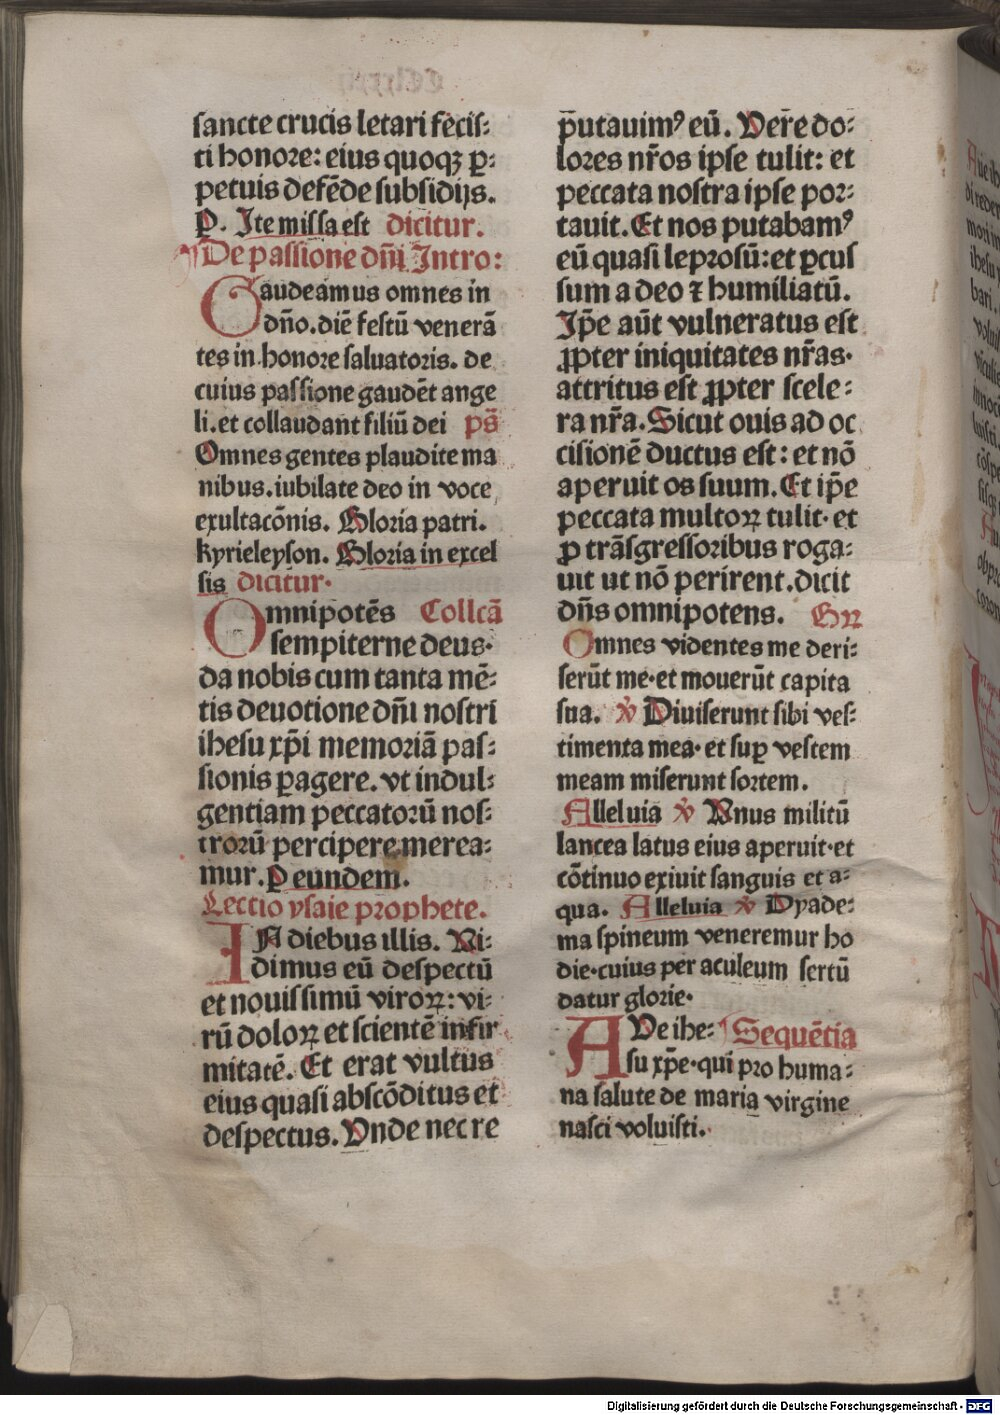 sancte crucis letari fecis:
ti honore: eius quoqꝫ ꝑ:
petuis defēde subsidijs.
P. Ite missa est dicitur.
De passione dn̄i Intro:
Gaudeamus omnes in
dn̄o. diē festū venerā
tes in honore saluatoris. de
cuius passione gaudēt ange
li. et collaudant filiū dei ps̄
Omnes gentes plaudite ma
nibus. iubilate deo in voce
exultacōnis. Gloria patri.
kyrieleyson. Gloria in excel
sis dicitur.
Omnipotēs Collcā
sempiterne deus.
da nobis cum tanta mē:
tis deuotione dn̄i nostri
ihesu xp̄i memoriā pas:
sionis ꝑagere. vt indul:
gentiam peccatorū nos:
trorū percipere merea:
mur. P eundem.
Lectio ysaie prophete.
IN diebus illis. Vi:
dimus eū despectū
et nouissimū viroꝝ: vi:
rū doloꝝ et scientē infir
mitatē. Et erat vultus
eius quasi abscōditus et
despectus. Vnde nec re
p̄utauimꝰ eū. Ver̄e do:
lores nr̄os ipse tulit: et
peccata nostra ipse por:
tauit. Et nos putabamꝰ
eū quasi leprosū: et ꝑcus
sum a deo ⁊ humiliatū.
Ip̄e aūt vulneratus est
ꝓpter iniquitates nr̄as.
attritus est ꝓpter scele:
ra nr̄a. Sicut ouis ad oc
cisionē ductus est: et nō
aperuit os suum. Et ip̄e
peccata multoꝝ tulit. et
ꝓ trāsgressoribus roga:
uit ut nō perirent. dicit
dn̄s omnipotens. Gꝝ
Omnes videntes me deri:
serūt me. et mouerūt capita
sua. ℣ Diuiserunt sibi ves:
timenta mea. et suꝑ vestem
meam miserunt sortem.
Alleluia ℣ Vnus militū
lancea latus eius aperuit. et
cōtinuo exiuit sanguis et a:
qua. Alleluia ℣ Dyade:
ma spineum veneremur ho
die. cuius per aculeum sertū
datur glorie.
AVe ihe: Sequētia
su xp̄e. qui pro huma:
na salute de maria virgine
nasci voluisti.
Digitalisierung gefördert durch die Deutsche Forschungsgemeinschaft - DFG